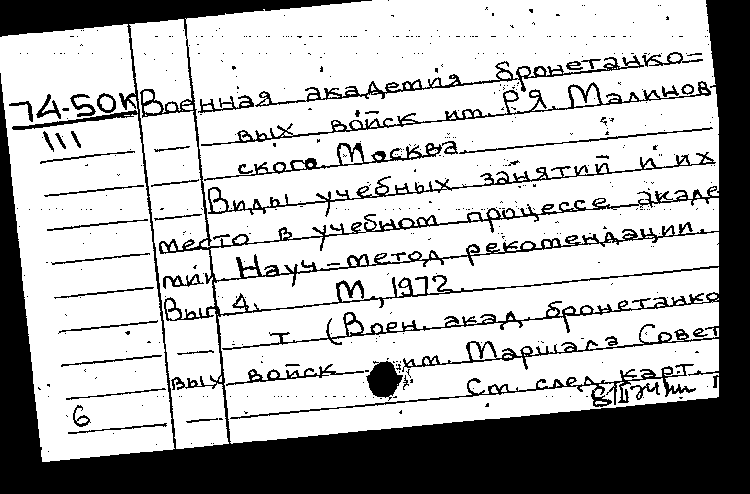 74-50К Военная академия бронетанко=
III вых войск им. Р.Я. Малинов-
ского. Москва.
Виды учебных занятий и их
место в учебном процессе акаде
мии Науч.=метод рекомендации.
Вып 4. М., 1972.
I. (Воен. акад. бронетанко
вых войск им. Маршала Совет
6 См. след. карт.